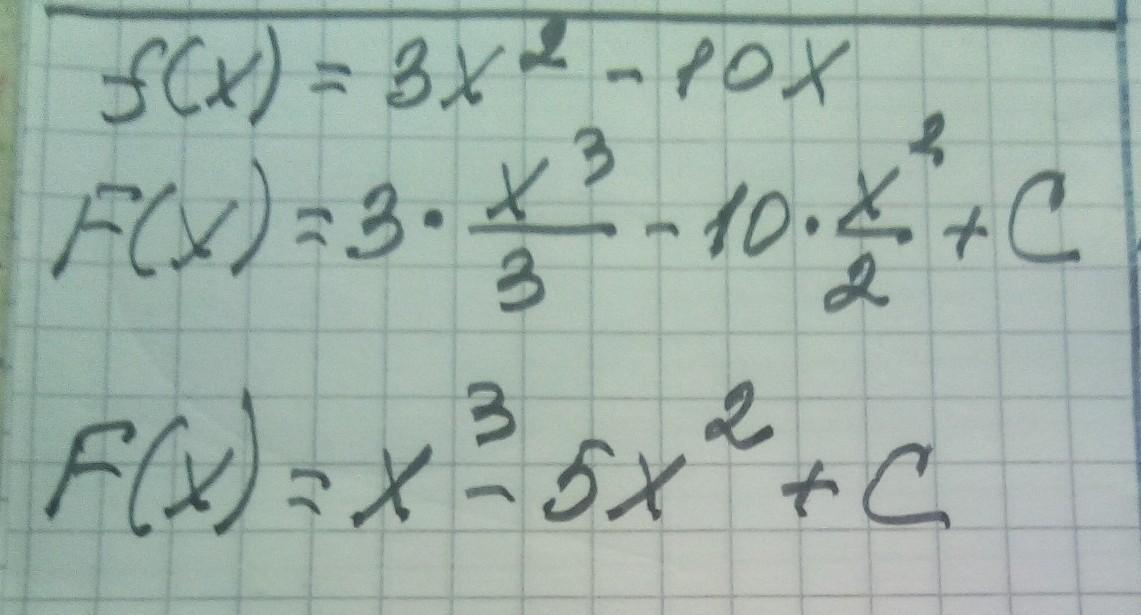 f(x) = 3x² - 10x
F(x) = 3 · x³/3 - 10 · x²/2 + C
F(x) = x³ - 5x² + C